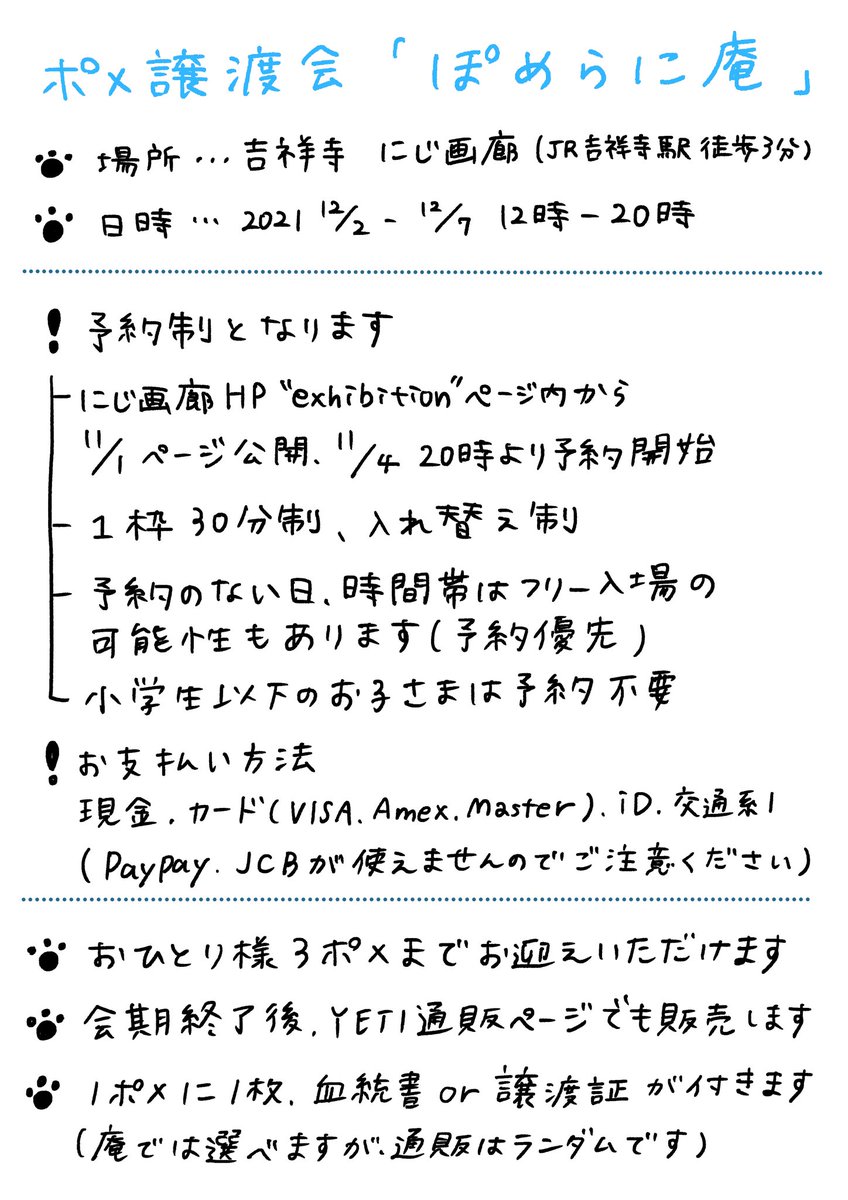 ポメ譲渡会「ぽめらに庵」
場所…吉祥寺 にじ画廊(JR吉祥寺駅徒歩3分)
日時…2021 12/2-12/7 12時-20時
! 予約制となります
にじ画廊HP"exhibition"ページ内から
11/1ページ公開、11/4 20時より予約開始
1枠30分制、入れ替え制
予約のない日、時間帯はフリー入場の
可能性もあります(予約優先)
小学生以下のお子さまは予約不要
! お支払い方法
現金、カード(VISA、Amex、Master)、iD、交通系I
(Paypay、JCBが使えませんのでご注意ください)
おひとり様3ポメまでお迎えいただけます
会期終了後、YETI通販ページでも販売します
1ポメに1枚、血統書or譲渡証が付きます
(庵では選べますが、通販はランダムです)